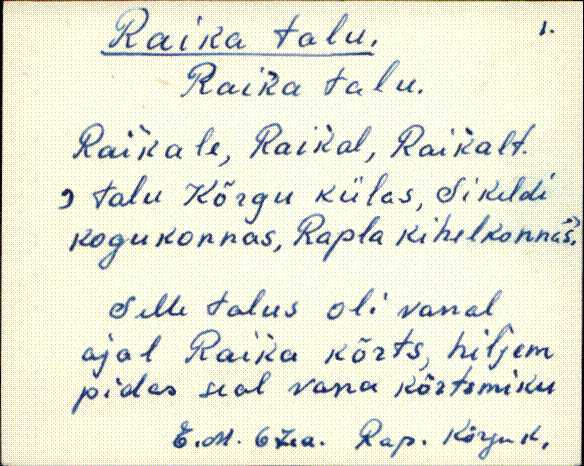 Raika talu. 1.
Raika talu.
Raikale, Raikal, Raikalt.
talu Kõrgu külas, Sikeldi
kogukonnas, Rapla kihelkonnas.
Selle talus oli vanal
ajal Raika kõrts, hiljem
pidas seal vana kõrtsmiku
E.M. 67.a. Rap. Kõrgu k.